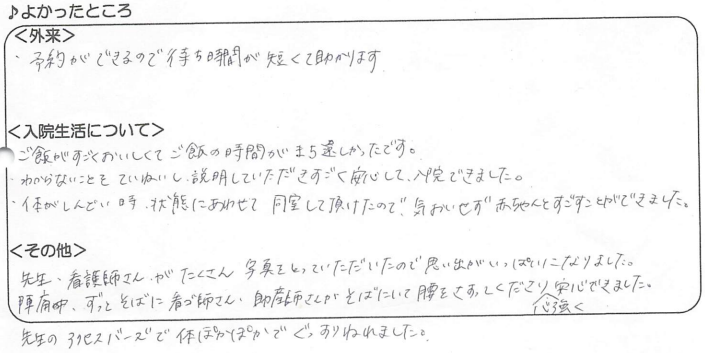 ♪よかったところ
＜外来＞
・予約ができるので待ち時間が短くて助かります
＜入院生活について＞
ご飯がすごくおいしくてご飯の時間がまち遠しかったです。
・わからないこともていねいし、説明していただきすごく安心して、入院できました。
・体がしんどい時、状態にあわせて同室して頂けたので、気おいせず赤ちゃんとすごすことができました。
＜その他＞
先生、看護師さんがたくさん写真をとっていただいたので思い出がいっぱいになりました。
陣痛中、ずっとそばに看ゴ師さん、助産師さんがそばにいて腰をさすってくださり安心できました。
心強く
先生のアクセスバーズで体ぽかぽかでぐっすりねれました。